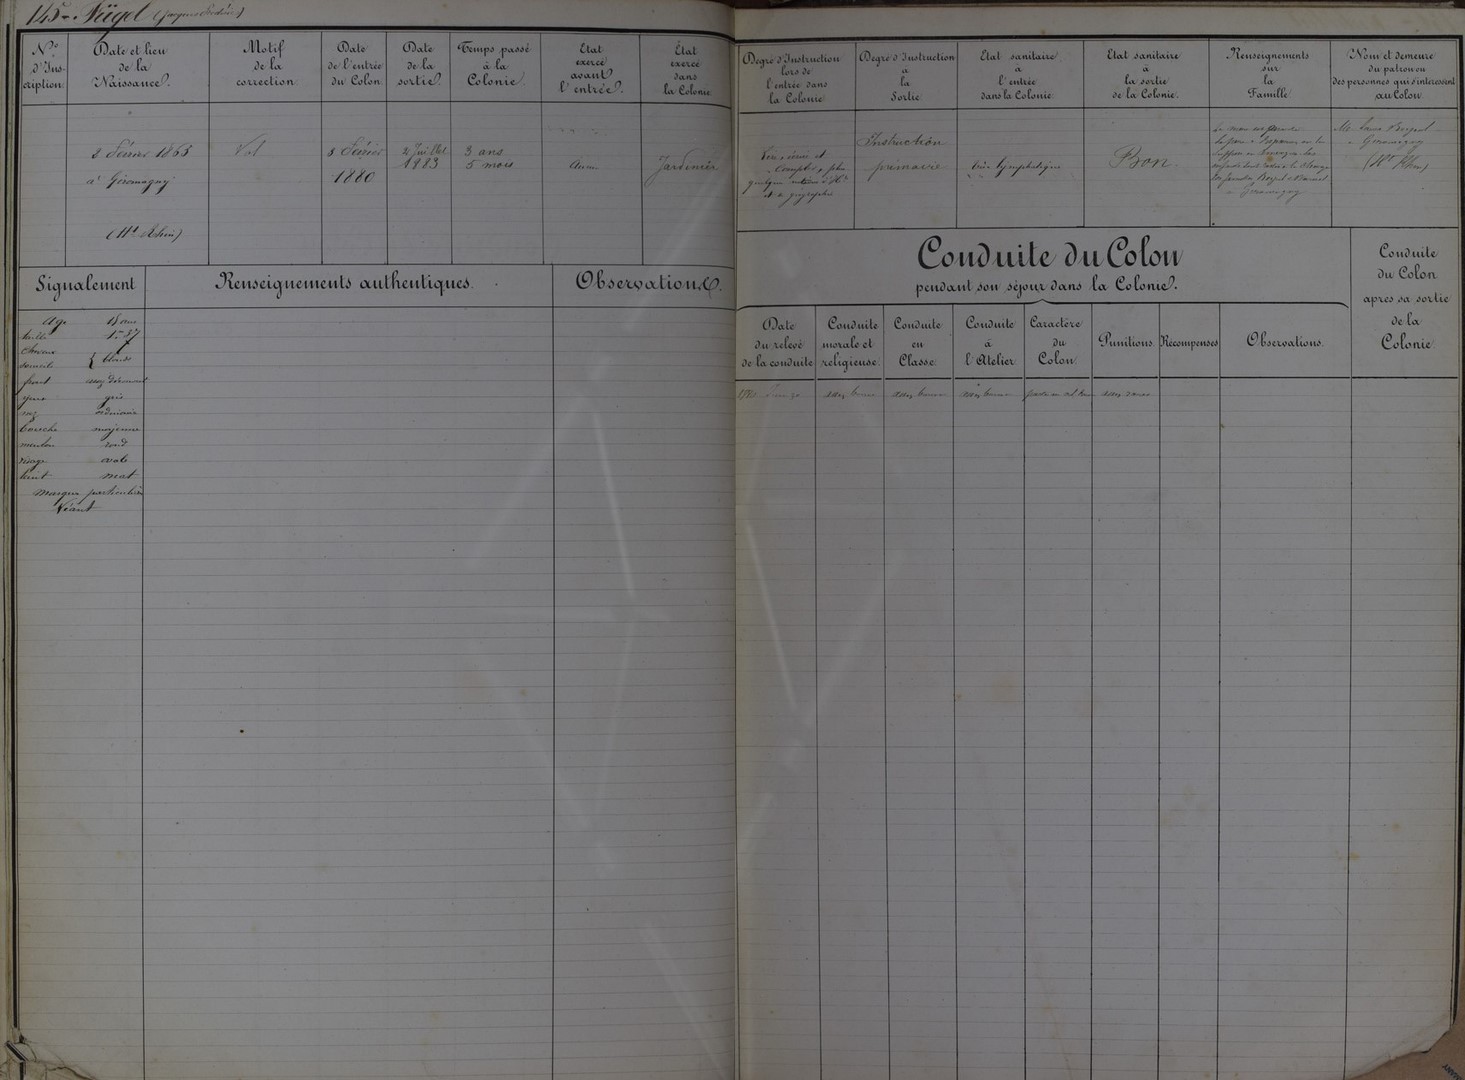 145 - Nügel (Jacques
N.º d'Inscription.
Date et lieu de la Naissance.
Motif de la correction
Date de l'entrée du Colon
Date de la sortie.
Temps passé à la Colonie.
Etat exercé avant l'entrée.
État exercé dans la Colonie
Degré d'Instruction lors de l'entrée dans la Colonie
Degré d'Instruction à la Sortie
Etat sanitaire à l'entrée dans la Colonie
Etat sanitaire à la sortie de la Colonie.
Renseignements sur la Famille
Nom et demeure du patron ou des personnes qui s'intéressent au Colon
2 Février 1865
à Giromagny
(Ht Rhin)
Vol
3 Février
1880
2 Juillet
1883
3 ans
5 mois
Aucun
Jardinier
Instruction
primaire
très lymphatique
Bon
à Giromagny
(Ht Rhin)
Signalement
Renseignements authentiques.
Observations.
Conduite du Colon
pendant son séjour dans la Colonie.
Conduite du Colon après sa sortie de la Colonie
Date du relevé de la conduite
Conduite morale et religieuse.
Conduite en Classe.
Conduite à l'Atelier
Caractère du Colon.
Punitions
Récompenses
Observations.
Age 15 ans
taille
cheveux
sourcils } blonds
front
yeux gris
nez ordinaire
bouche moyenne
menton rond
visage ovale
teint mat
marques particulières
Néant
assez bonne assez bonne assez bonne